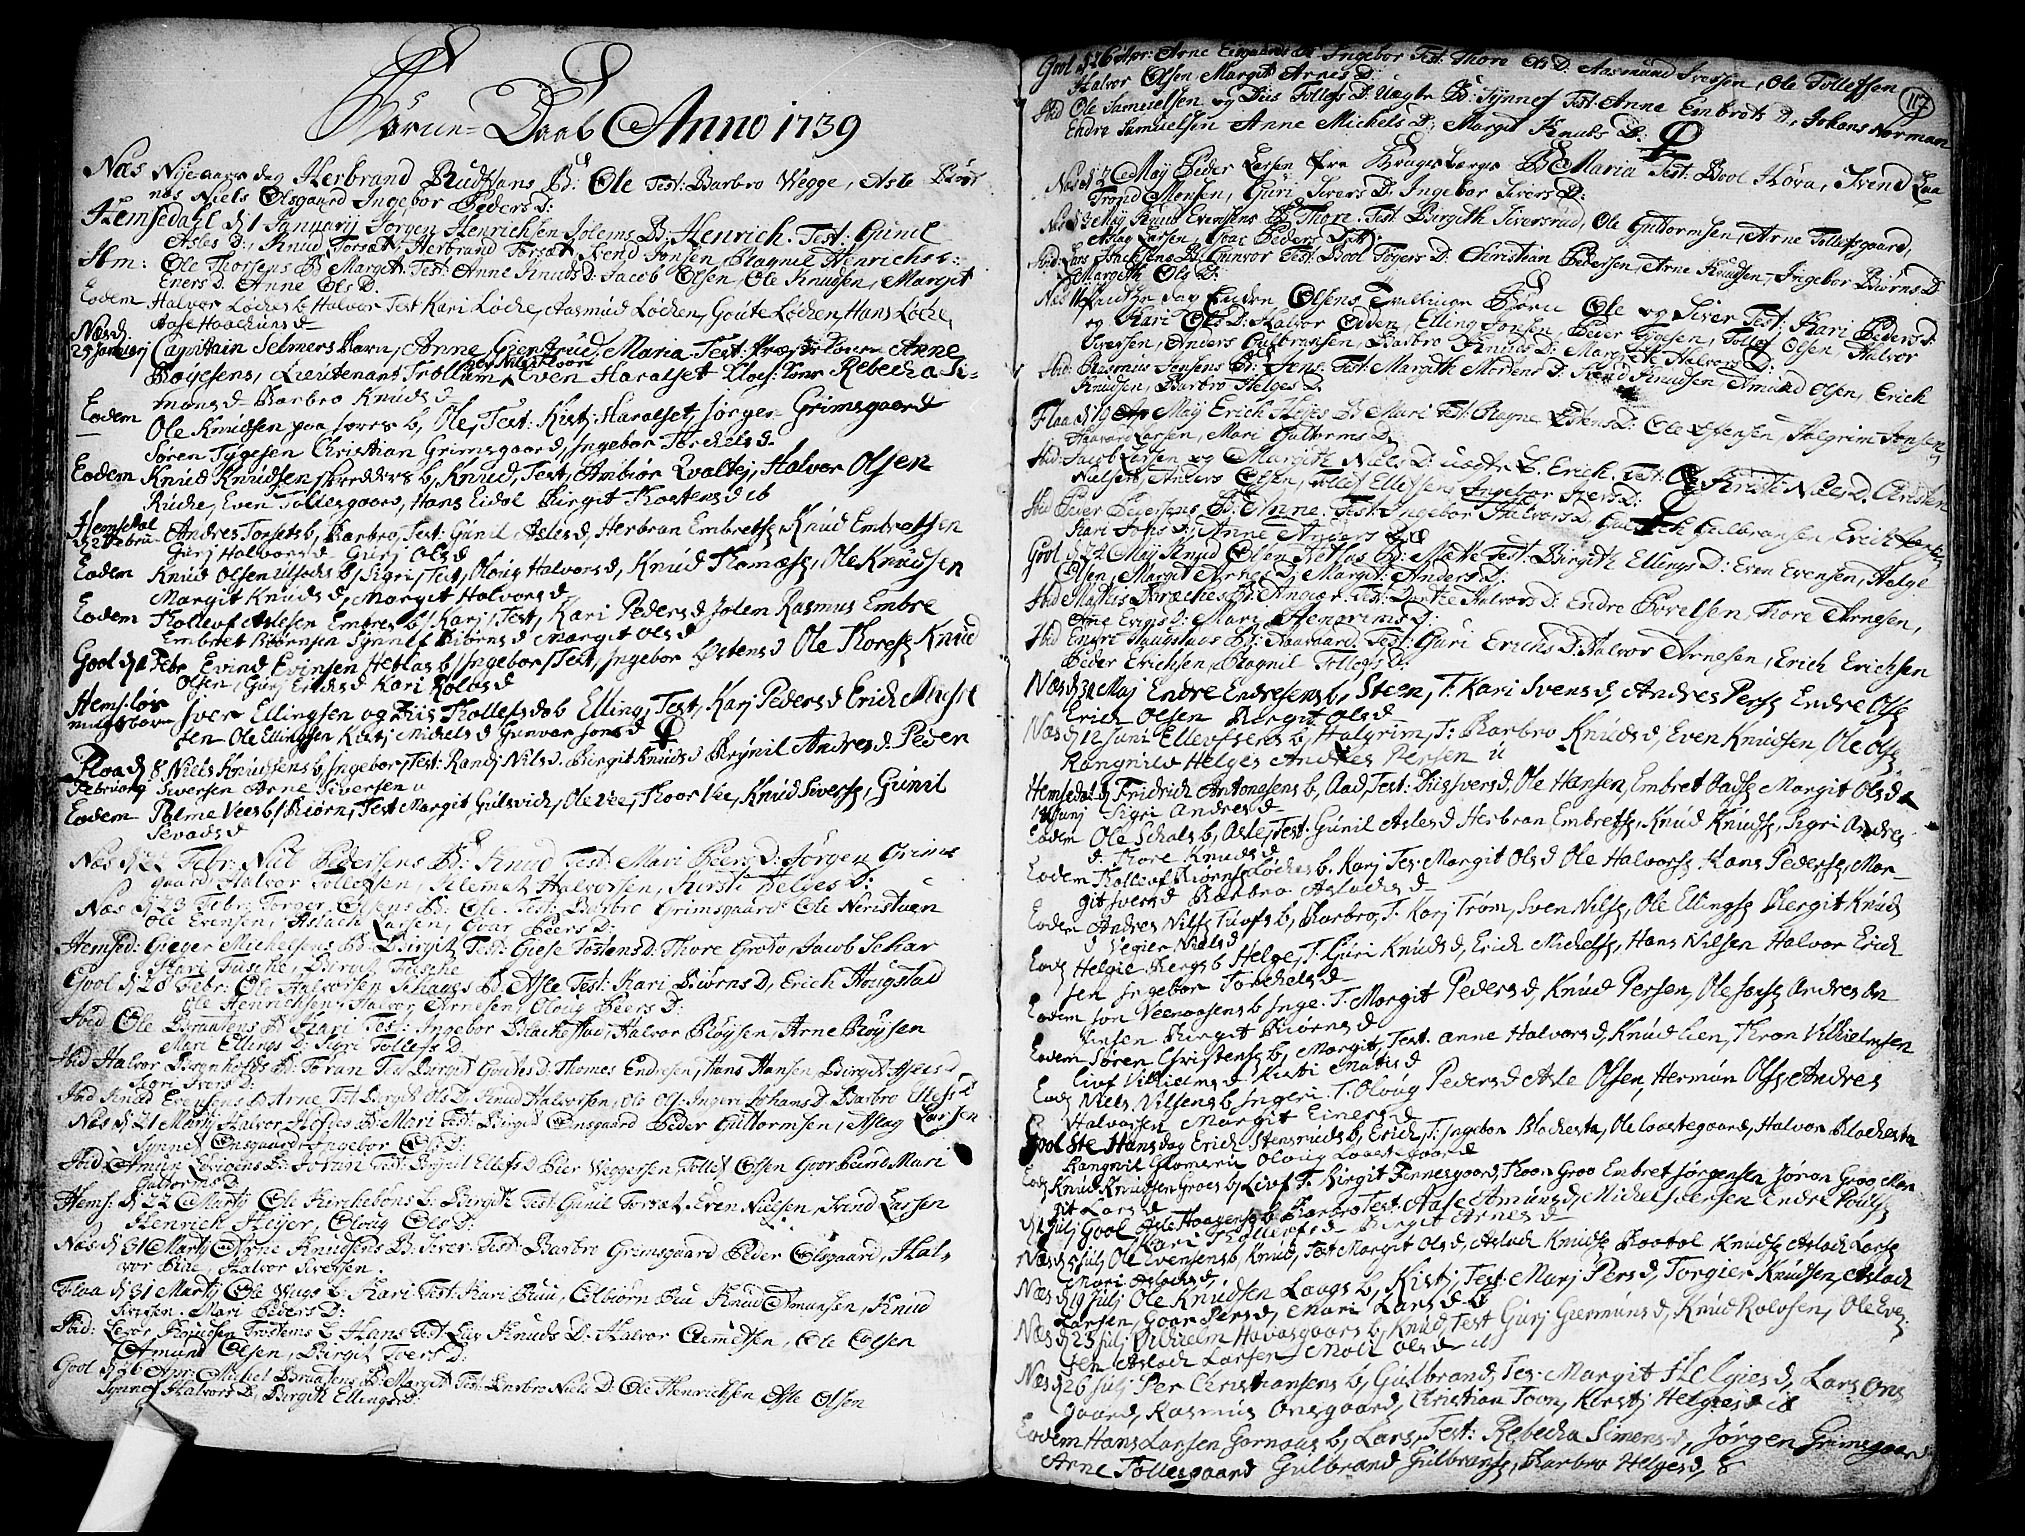 Börne-Daab Anno 1739
Næs Nÿe aars dag Herbrand Rudtsans B: Ole Test: Barbro Wegge, Asle
næs Niels Olsgaard Ingebor Peders D:
Hemsedahl d 1 Januarij Jörgen Henrichsen Solems B: Henrich. Test: Gunil
Asles D:, Knud Torsæt, Herbrand Torsæt, Svend Jonsen, Ragnil Henrichs
Hm: Ole Thorsens B: Margit Test: Anne Knuds D: Jacob Olsen, Ole Knudsen, Margit
Eners D: Anne Ols D:
Eodem Halvor Löches b, Halvor Test Kari Löche, Aasmud Löchen, Goute Löchen, Hans Löche,
Aase Haachuns d
Næs d.
25 Januarj Capitain Selmers Barn, Anne Giertrud Maria. Test: Anne
Boyesens, Lieutenant Trollum, Even Haralset Rebecha Si-
mons d Barbro Knuds d
Eodem Ole Knudsen paa b, Ole, Test: Kirst: Haralset, Jörgen Grimsgaard
Sören Tygesen Christian Grimsgaard, Ingebor Torchels d.
Eodem Knud Knudsen skredders b, Knud, Test, Ambiör Qvallej, Halvor Olsen
Ruche, Even Tollefsgaard, Hans Eidal Birgit Thostens d
Hemsdal
d 2 Febru Andres Torsets b, Barbro, Test: Gunil Asles d, Herbran Embretss, Knud Embretsen
Gurj Halvors d Gurj Ols d
Eodem Knud Olsen Ulsachs b, Sigri, Test, Oloug Halvors d, Knud Thomæss, Ole Knudsen
Margit Knuds d, Margit Halvors d
Eodem Thollevf Aslesen Embres b, Karj, Test, Kari Peders d Solem Rasmus Embre
Embret Biörnsen Synnef Biörns d Margit Ols d
Gool d Febr Evind Evinsen Hetlas b, Ingebor, Test, Ingebor Östens d Ole Thoress Knud
Olsen, Gurj Erichs d Kari Rolvs d
Hems:
Sver Ellingsen og Siis Thollefsdob Elling, Test, Karj Peders d Erich Michel
sen Ole Ellingsen Karj Michels d Gunvor Jons d
Floa d 8 Niels Knudsens b, Ingebor, Test: Randj Nils d Birgit Knuds d Rognil Andres d. Peder
Februarij Siversen Arne Siversen
Eodem Palme Vees b, Biörn, Test Margit Gulsvich, Ole Vee, Thoor Vee, Knud Siverss, Gunil
Sevads d
Næs d 22 Febr: Niels Pedersens B: Knud Test: Mari Peers D: Jörgen Grims
gaard, Halvor Tollefsen, Clemet Halvorsen, Kirsti Helges D:
Næs d 23 Febr: Torger Olsens B: Ole. Test: Barbro Grimsgaard Ole Neristuen
Ole Evensen, Aslach Larsen, Goar Peers D:
Hemsed: Gieger Michelsens B: Birgit Test: Giese Tostens D: Thore Groto, Jacob Schar
Kari Tusche, Birgit Tusche
Gool d 28 Febr: Ole Halvorsen Schaugs B: Asle Test: Kari Biörns D, Erich Hougstad
Ole Henrichsen, Halvor Arnesen, Oloug Peers D:
Ibid Ole Braatens B: Kari Test: Ingebor Blachestad, Halvor Röysen, Arne Röysen
Mari Ellings D: Sigri Tollefs D.
Ibid Halvor Brynholds B: Joran Test Birgit Gouths D: Thomes Endresen, Hans Hansen, Birgit
Sigri Ivers D:
Ibid Knud Evensens B Arne Test Birgit Ols D, Knud Halvorsen, Ole Ols: Ingeri Johans D Barbro
Næs d 21 Martij Halvor Hofdes B: Mari Test: Birgit Onsgaard Peder Guttormsen, Aslag Larsen
Synnef Onsgaard Ingebor Ols D:
Ibid Amun Lövigens B: Joran Test: Bognil Ellefs D Peer Weggersen Tollef Olsen Goor Mari
Guttorms D:
Hems: d 22 Martij Ole Kircheböns B: Birgit Test: Gunil Torsæt, Even Nielsen, Svend Larsen
Henrich Heyer, Oloug Ols D:
Næs d 31 Martij Arne Knudsens B: Sever Test: Barbro Grimsgaard Peder Olsgaard, Hal-
vor Bide, Halvor Iversen.
Flaa d 31 Martij Ole Wugs B: Kari Test: Kari Buu, Colbiörn Buu, Knud Amunsen, Knud
Iversen. Mari Peders D:
Ibid: Levor Knudsen Trostems B: Hans Test Liv Knuds D: Halvor Clemetsen, Ole Olsen
Amund Olsen, Birgit Ivers D:
Gool d 26 Apr: Michel Braatens B: Margit Test: Barbro Niels D: Ole Henrichsen Asle Olsen
Synnef Halvors D, Birgit Ellings D:
117
Gool d 26 Apr: Arne B Ingebor Test: Thore Ols D: Aasmund Iversen, Ole Tollefsen
Halvor Olsen Margit Arnes D:
Ibid Ole Samuelsen og Siis Tollefs D: Uægte B: Synnef Test: Anne Embrets D., Johans Norman
Endre Samuelsen Anne Michels D: Margit Knuds D:
Næs d Maij Peder Larsen fra Bragesbergs B Maria Test: Bool Höva, Svend Laa
Trond Monsen, Guri Ivers D: Ingebor Ivers D:
Næs d 3 Maij Knud Evensens B Thore. Test Birgith Siversrud, Ole Guttormsen, Arne Tollefsgaard,
Aslag Larsen, Goar Peders D:
Ibid Lars Jachesens B: Gunvor Test: Bool Togers D: Christian Pedersen, Arne Knudsen, Ingebor Biörns D
Margith Ols D:
Næs dag Endre Olsens Tvillinge Börn Ole og Siver Test: Kari Peders D:
og Kari Ols D: Halvor Odden, Elling Jonsen, Peder Tygesen, Tollef Olsen, Halvor
Siversen, Anders Gulbransen, Barbro Knuds D: Margrete Halvors D:
Ibid: Rasmus Jensens B: Jens Test: Margith Mortens D: Svend Knudsen, Amund Olsen, Erich
Knudsen, Barbro Helges D:
Flaa d 19 Maij Erich Heies B: Mari Test: Ragne Estens D: Ole Estensen, Halgrim Jonsen
Haavard Larsen, Mari Guttorms D.
Ibid: Jacob Larsen og Margith Niels D: uægte B. Erich, Test: Kristi Niels D, Christen
Nielsen, Anders Olsen, Tollef Ellefsen, Ingebor Ivers D:
Ibid Peder Pedersens B: Anne. Test: Ingebor Halvors D, Gulbransen, Erich
Kari Johs D: Anne Anders D:
Gool d 24 Maij Knud Olsen Hetlus B: Mette Test: Birgith Ellings D: Even Evensen, Helge
Olsen, Margit Arnes D, Margit Anders D:
Ibid Mathis B: Angiær Test: Dortee Halvors D: Endre Torelsen, Thore Arnesen,
Anne Evens D: Mari Henorims D:
Ibid Endre Haugstads B: Haavaard Test: Guri Erichs D: Halvor Arnesen, Erich Erichsen
Peder Erichsen, Ragnil Tollefs D:
Næs d 31 Maj Endre Endresens b, Steen, T. Kari Svens d, Andres Perss Endre Olss
Erich Olsen Birgit Ols d
Næs d 12 Juni Ellevfsens b, Halgrim, T: Barbro Knuds d, Even Knudsen, Ole Olss
Rangnild Helges Andres Persen
Hemsedal d Fridrich Antonesens b, Aad, Test: Sivers d, Ole Hansen, Embret Aadss Margit Ols d
14 Junj Sigri Andres d
Eodem Ole Schols b, Asle, Test: Gunil Asles d Herbran Embretss, Knud Knudss, Sigri Andres
d. Thore Knuds d
Eodem Thollevf Biörnss Löches b, Karj Tes: Margit Ols d Ole Halvorss Hans Pederss, Mar-
git Svens d Barbro Aslachs d
Eodem Andres Nilss Tuvfs b, Barbro, T. Karj Tröm, Sven Nilss, Ole Ellingss Birgit Knud
d Vegier Niels d
Eod Helgie Bergs b Helge, T: Guri Knuds d, Erich Michelss, Hans Nilsen Halvor Erich
sen Ingebor Torchels d
Eodem Jon Veenaasens b Inge. T. Margit Peders d, Knud Persen, Ole Jonss Andres An
Birgit Biörns d
Eodem Sören Christenss b, Margit, Test. Anne Halvors d, Knud Lien, Thron Vilhielmsen
Livf Vilhielms d Kisti Mathis d
Eod Niels Nilsens b, Ingeri. T. Oloug Peders d Asle Olsen, Hermun Olss Andres
Halvorsen Margit Einers d
Gool Ste Hansdag Erich Stensruds b, Erich, T: Ingebor Blochesta, Ole Laastegaard, Halvor Blochesta
Rangnil Glomeru Oloug Laastgaard
Eod Knud Knudsen Groes b, Livf T. Birgit Fennesgaard, Thoor Groo Embret Jörgensen Jöran Groo Mar
git Lars d
d Julj Gool Asle Haagenss b Barbro Test: Aase Amuns d, Michel Iversen Endre
Kari Thollevfs d Birgit Arnes d
Næs d 5 Julj Ole Evensens b, Knud, Test Margit Ols d, Aslach Knudss Knudss Aslach Larss
Mari Aslachs d,
Næs d 19 Julj Ole Knudsen Laags b, Kisti, Test: Marj Pers d, Torgier Knudsen, Aslach
Larsen, Goar Pers d, Mari Lars d
Næs d 25 Julj Vilhielm Havasgaars b, Knud, Test Gurj Giermuns d, Knud Rolvsen, Ole Even
sen Aslach Larsen, Moli Ols d
Næs d 26 Julj Per Christiansens b, Gulbrand, Tes: Margit Helgies d, Lars Ons-
gaard, Rasmus Onsgaard, Christian Toon, Kirstj Helgies d
Eodem Hans Larssen Gornaas b, Lars, Test: Rebecha Simons d, Jörgen Grimsgaard
Arne Tollesgaard Gulbrand Gulbranss, Barbro Helges d,